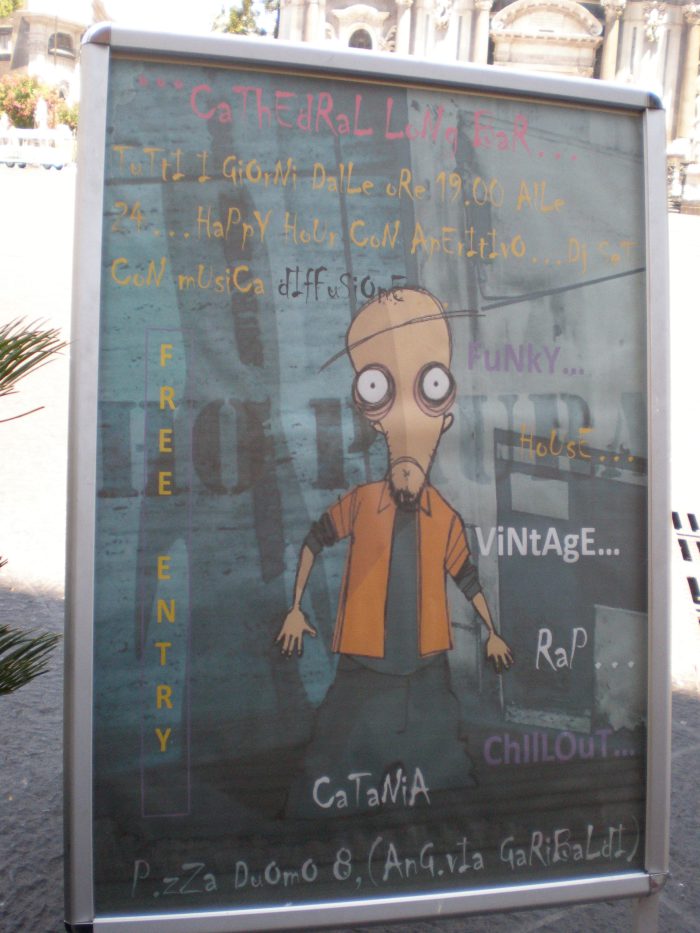 ...CaThEdRaL LoUNg BaR...
TuTtI I GiOrNi DaLLe oRe 19.00 AlLe
24...HaPpY HoUr CoN ApErItIvO...Dj SeT
CoN mUsiCa dIffuSiOnE
FREE ENTRY
FuNkY...
HoUsE...
ViNtAgE...
RaP...
ChIlLOuT...
CaTaNiA
P.zZa DuOmO 8,(AnG.vIa GaRiBaLdI)